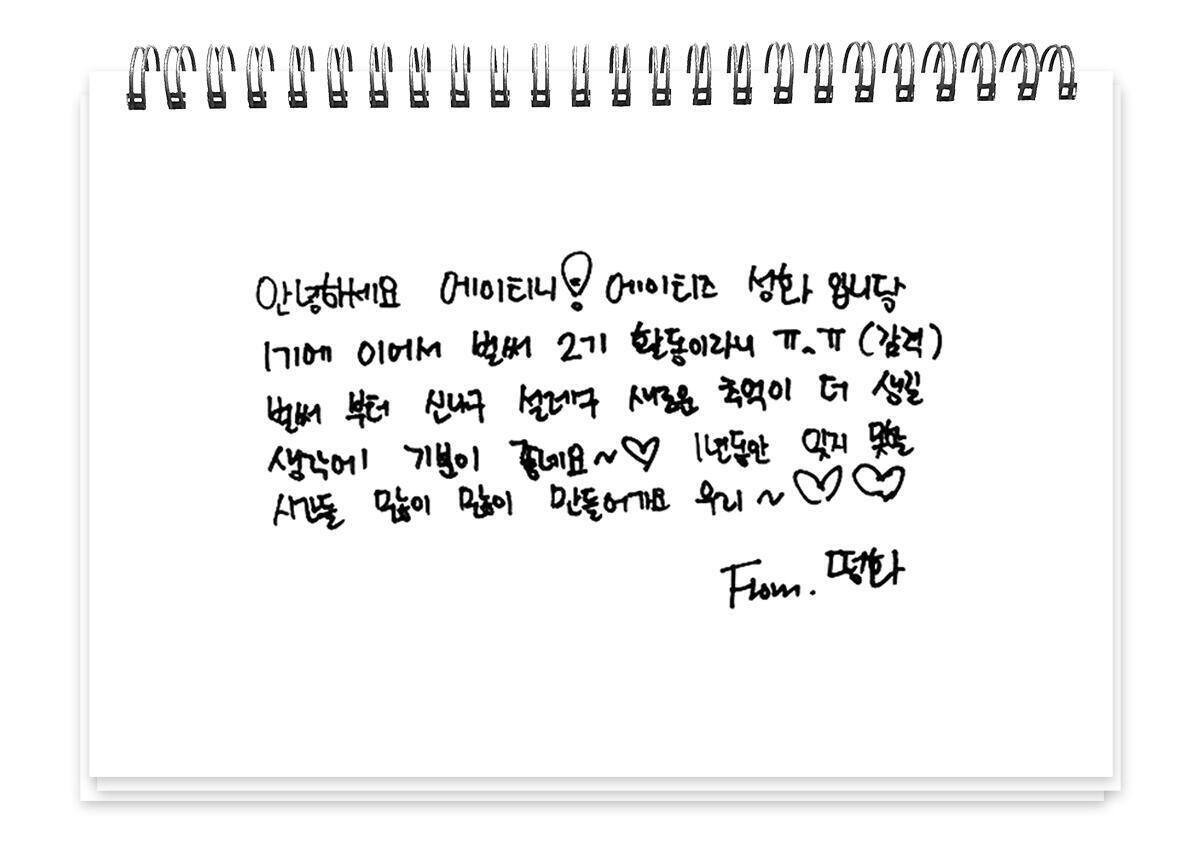 안녕하세요 에이티니! 에이티즈 성화 입니당
1기에 이어서 벌써 2기 활동이라니 ㅠ^ㅠ (감격)
벌써 부터 신나구 설레구 새로운 추억이 더 생길
생각에 기분이 좋네요~♡ 1년동안 잊지 못할
시간들 많이 많이 만들어가요 우리~♡♡
From. 떵화